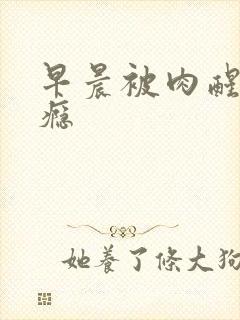 早晨被肉醒
瘾
她養了條大狗